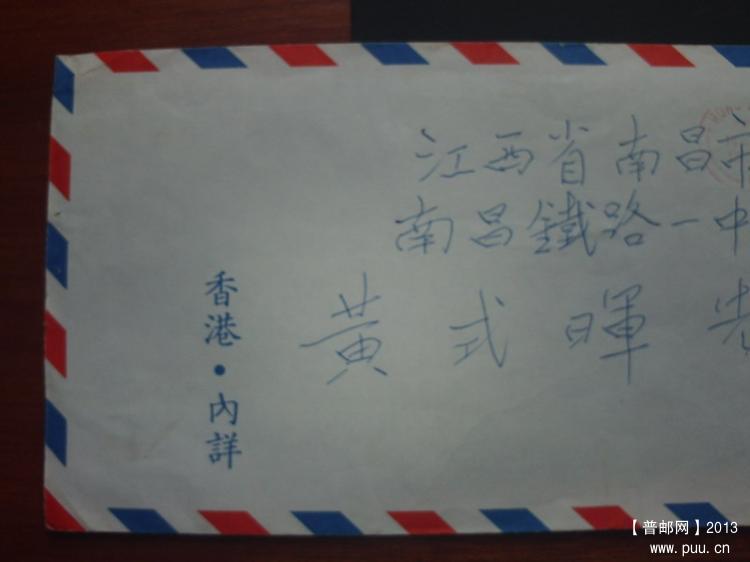 江西省南昌市
南昌鐵路一中
黃式暉
香港·內詳
【普邮网】2013
www.puu.cn